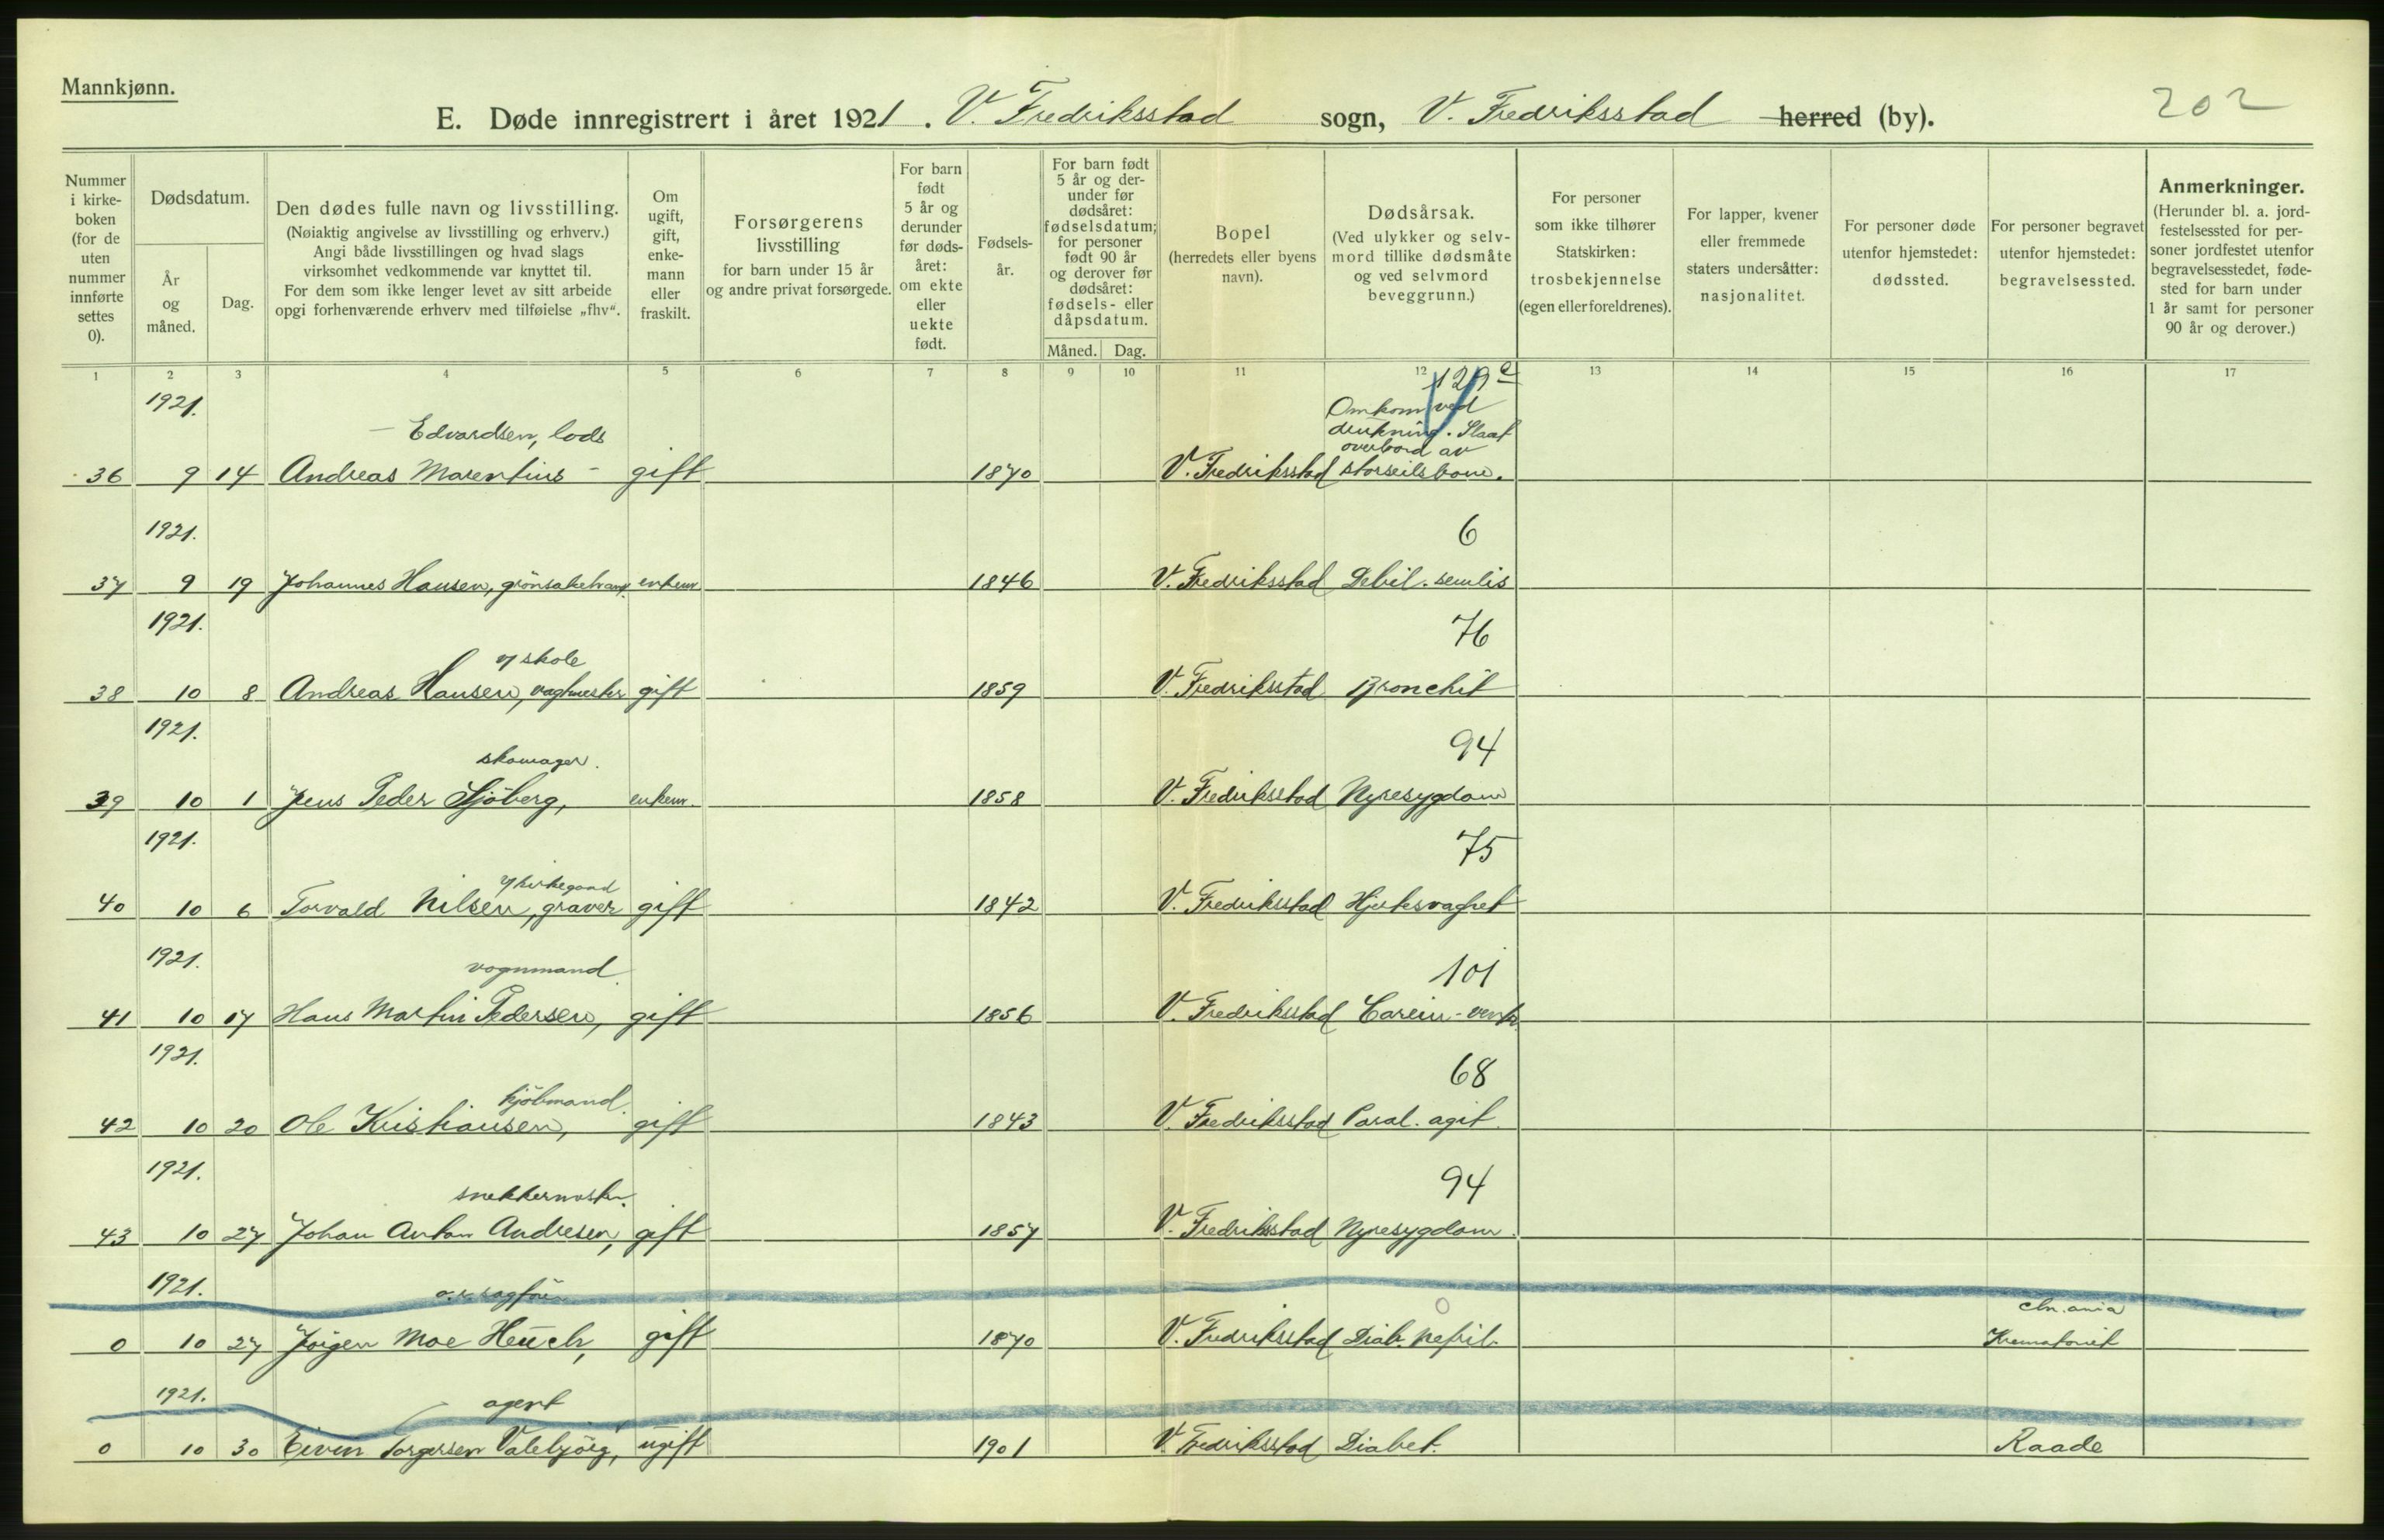 Mannkjønn.
202
E. Døde innregistrert i året 1921. V. Fredriksstad sogn, V. Fredriksstad herred (by).
Nummer i kirke-boken (for de uten nummer innførte settes 0).
Dødsdatum.
År og måned.
Dag.
Den dødes fulle navn og livsstilling.
(Nøiaktig angivelse av livsstilling og erhverv.)
Angi både livsstillingen og hvad slags
virksomhet vedkommende var knyttet til.
For dem som ikke lenger levet av sitt arbeide
opgi forhenværende erhverv med tilføielse „fhv“.
Om ugift, gift, enke-mann eller fraskilt.
Forsørgerens livsstilling
for barn under 15 år
og andre privat forsørgede.
For barn født 5 år og derunder før døds-året: om ekte eller uekte født.
Fødsels-år.
For barn født 5 år og der-under før dødsåret: fødselsdatum; for personer født 90 år og derover før dødsåret: fødsels- eller dåpsdatum.
Måned.
Dag.
Bopel
(herredets eller byens navn).
Dødsårsak.
(Ved ulykker og selv-mord tillike dødsmåte og ved selvmord beveggrunn.)
For personer som ikke tilhører Statskirken: trosbekjennelse (egen eller foreldrenes).
For lapper, kvener eller fremmede staters undersåtter: nasjonalitet.
For personer døde utenfor hjemstedet: dødssted.
For personer begravet utenfor hjemstedet: begravelsessted.
Anmerkninger.
(Herunder bl. a. jord-festelsessted for per-soner jordfestet utenfor begravelsesstedet, føde-sted for barn under 1 år samt for personer 90 år og derover.)
1 2 3 4 5 6 7 8 9 10 11 12 13 14 15 16 17
1921. 129 e
Omkom ved
— Edvardsen, lods drukning. Slaat
overbord av
36 9 14 Andreas Marentius — gift 1870 V. Fredriksstad storseilsbom.
1921. 6
37 9 19 Johannes Hansen, enkem 1846 V. Fredriksstad Debil. senilis
1921. 76
v/ skole
38 10 8 Andreas Hansen, vagtmester gift 1859 V. Fredriksstad Bronchit
1921. 94
skomager.
39 10 1 Jens Peder Sjöberg, enkem. 1858 V. Fredriksstad Nyresygdom
1921. 75
v/ kirkegaard
40 10 6 Torvald Nilsen, graver gift 1842 V. Fredriksstad Hjertesvaghet
1921. 101
vognmand.
41 10 17 Hans Martin Pedersen, gift 1856 V. Fredriksstad Carcin-ventr.
1921. 68
kjöbmand.
42 10 20 Ole Kristiansen, gift 1843 V. Fredriksstad Paral. agit.
1921. 94
snekkermester.
43 10 27 Johan Anton Andresen, gift 1857 V. Fredriksstad Nyresygdom.
1921.
o.r. sagförer
0
Chr.ania
0 10 27 Jörgen Moe Heuch, gift 1870 V. Fredriksstad Diab. nefrit. Krematoriet
1921.
agent
0 10 30 Eivin Torgersen Valebjörg, ugift 1901 V. Fredriksstad Diabet. Raade